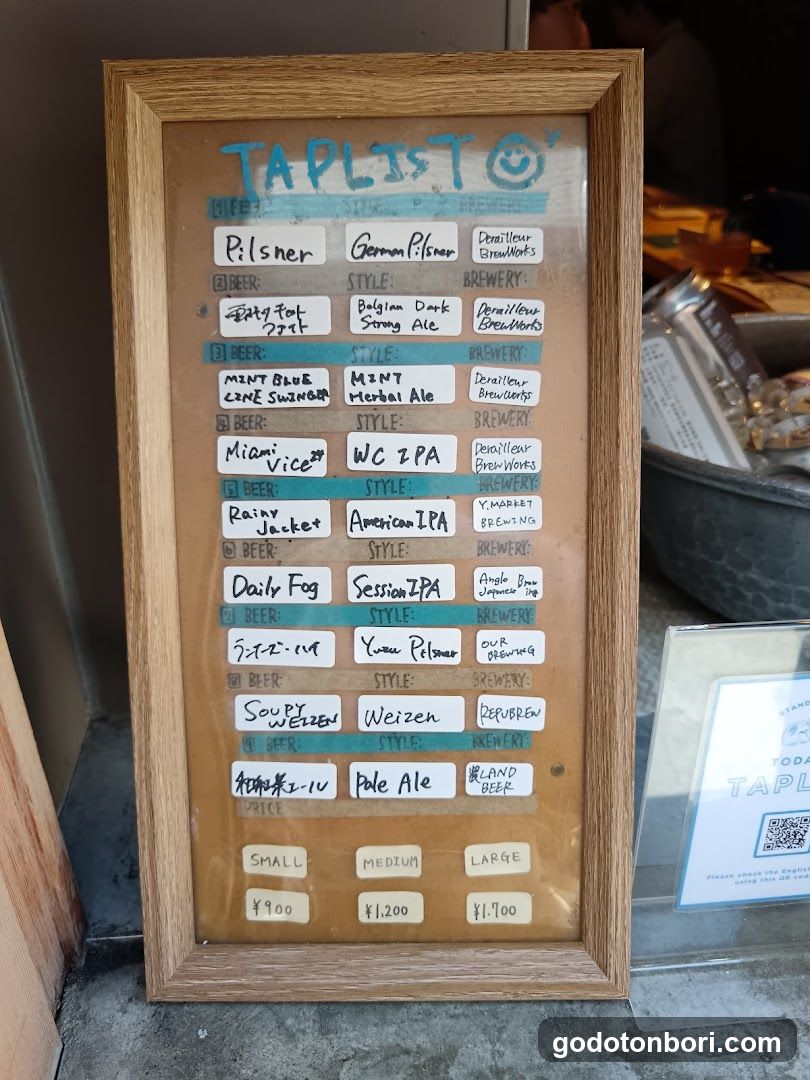 TAPLIST
1 BEER: STYLE: BREWERY:
Pilsner German Pilsner Derailleur BrewWorks
2 BEER: STYLE: BREWERY:
ファイト Belgian Dark Strong Ale Derailleur BrewWorks
3 BEER: STYLE: BREWERY:
MINT BLUE LINE SWINGER MINT Herbal Ale Derailleur BrewWorks
4 BEER: STYLE: BREWERY:
Miami Vice WC IPA Derailleur BrewWorks
5 BEER: STYLE: BREWERY:
Rainy Jacket American IPA Y.MARKET BREWING
6 BEER: STYLE: BREWERY:
Daily Fog Session IPA Anglo Japanese Brewing
7 BEER: STYLE: BREWERY:
Yuzu Pilsner OUR BREWING
8 BEER: STYLE: BREWERY:
SOUPY WEIZEN Weizen REPUBREW
9 BEER: STYLE: BREWERY:
エール Pale Ale 農LAND BEER
PRICE
SMALL MEDIUM LARGE
¥900 ¥1,200 ¥1,700
STAND
TODA
TAPL
Please check the English
using this QR cod
godotonbori.com